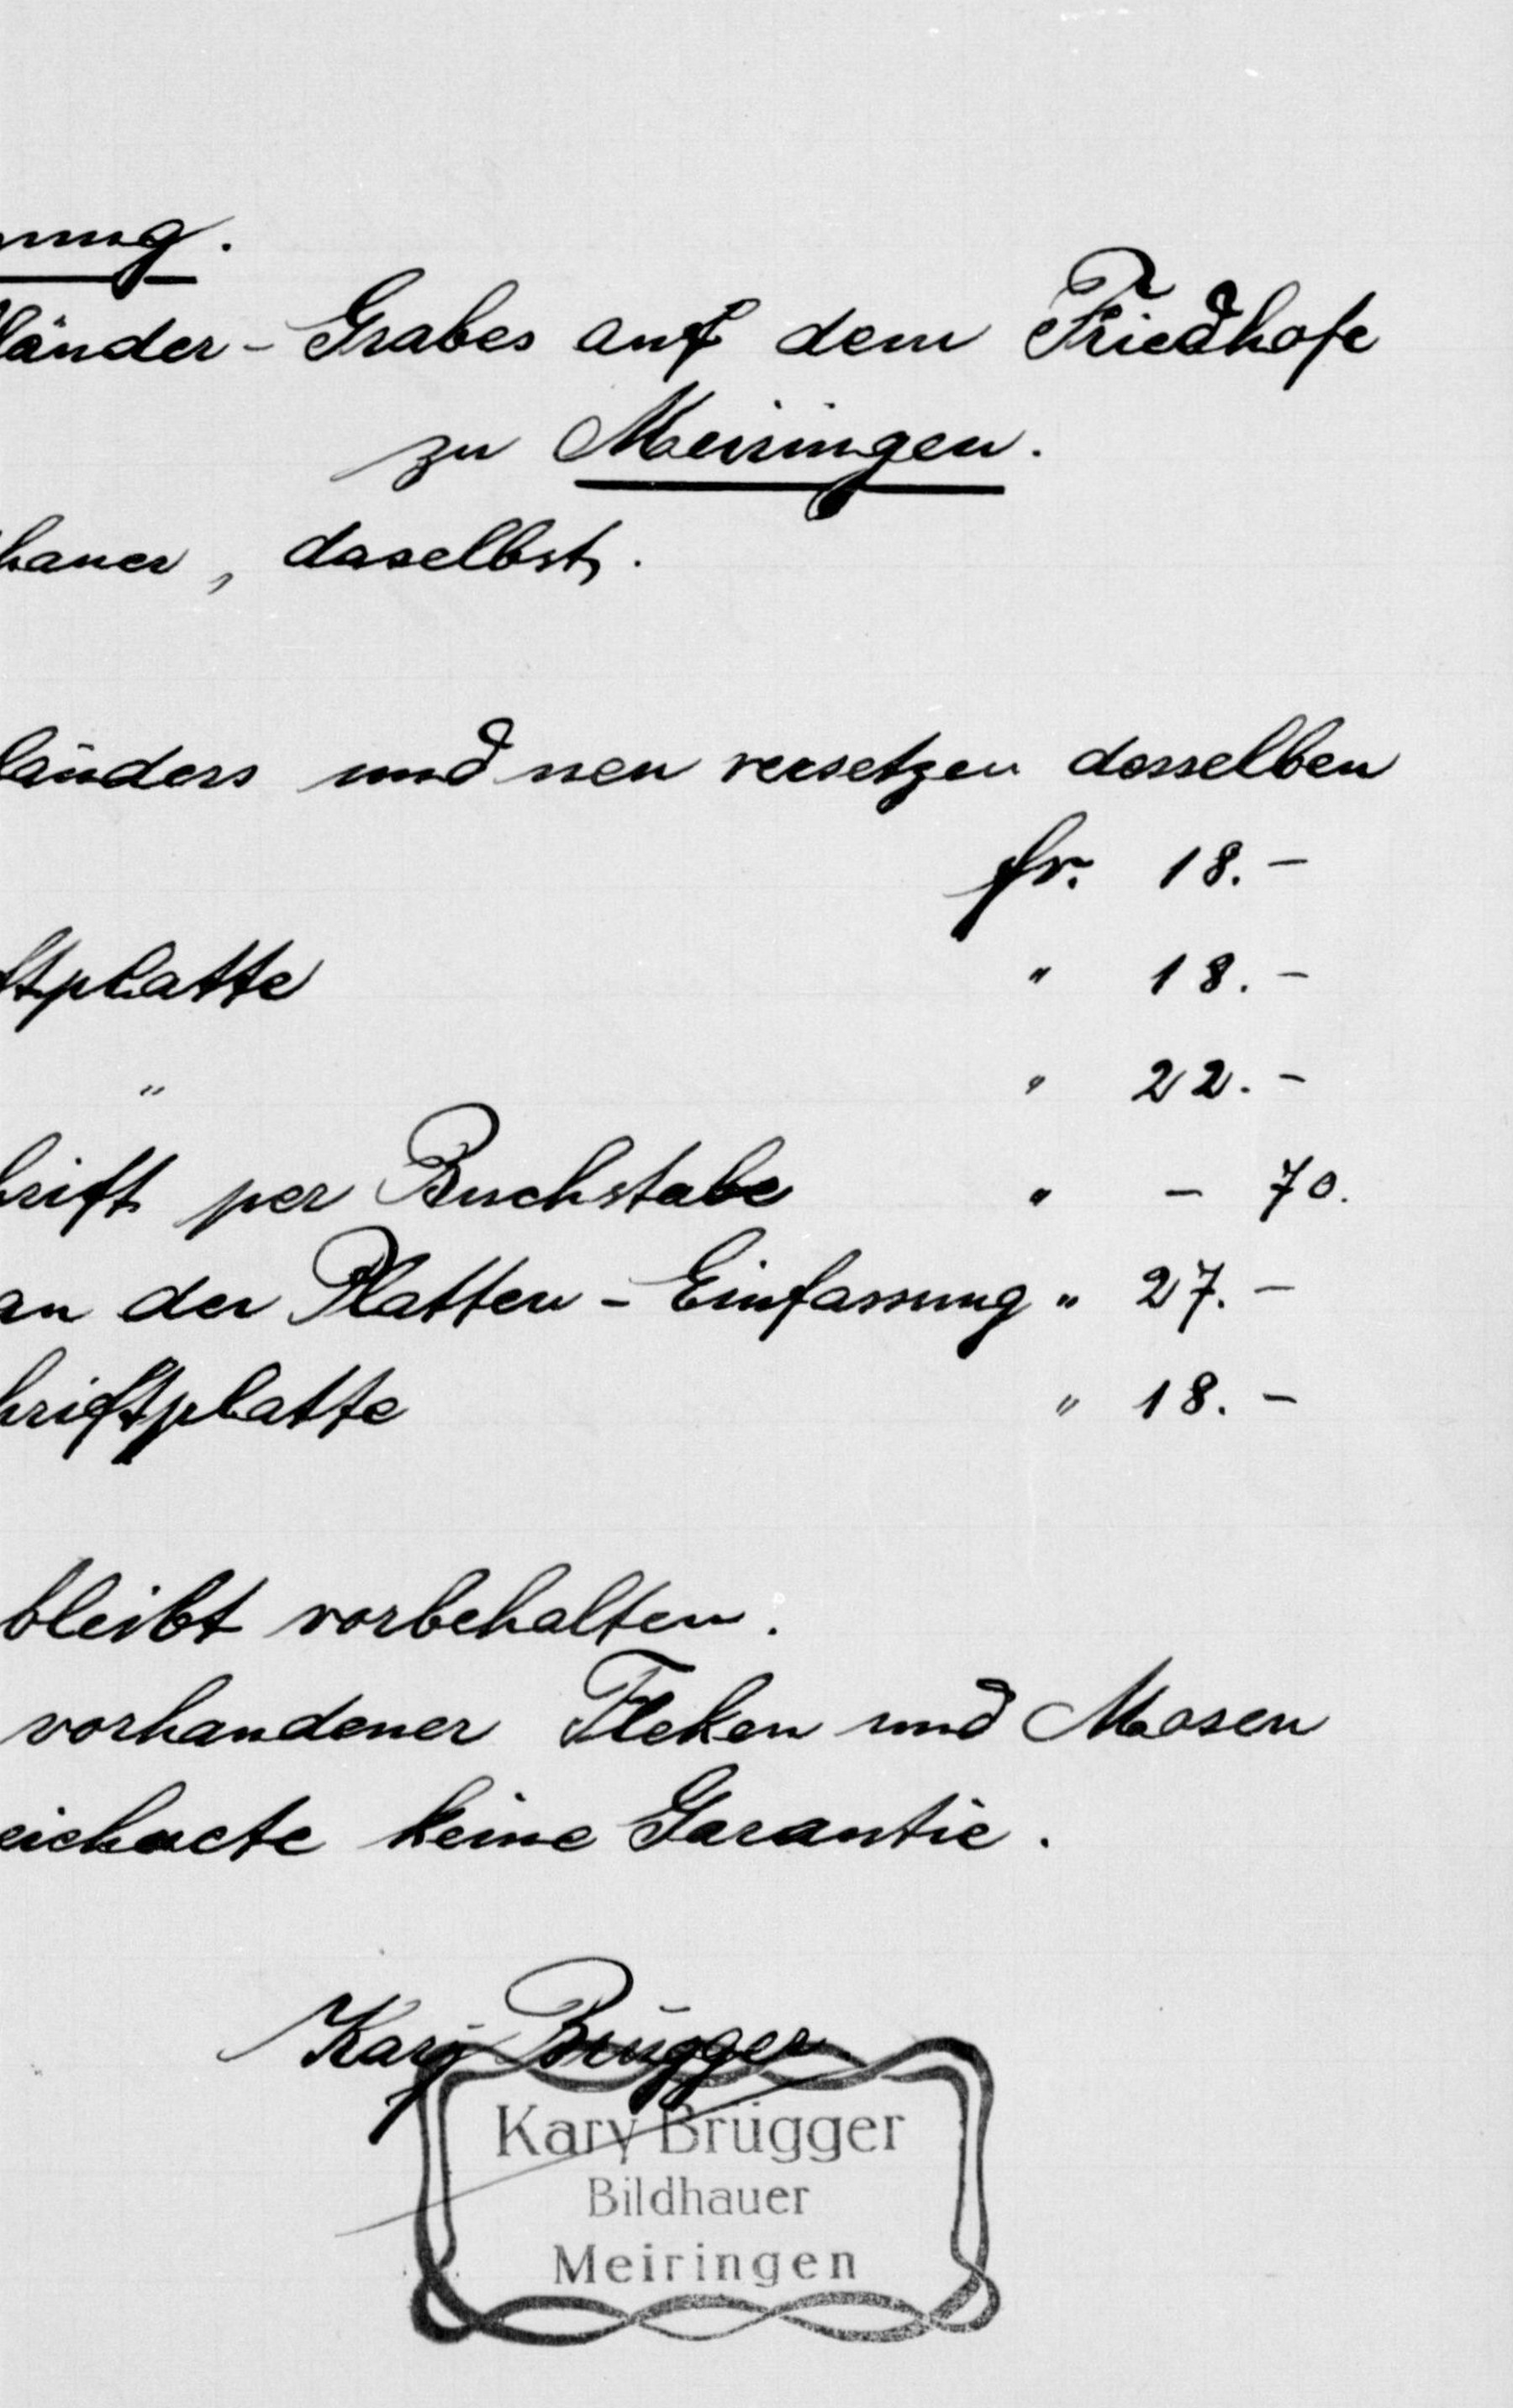 nung.
länder - Grabes auf dem Friedhofe
zu Meiringen.
hauer, daselbst.
länders und neu versetzen desselben
fr. 18.-
ftplatte " 18.-
" " 22.-
hrift per Buchstabe " - 70.
an der Platten - Einfassung " 27.-
hriftplatte " 18.-
bleibt vorbehalten.
vorhandener Fleken und Mosen
keine Garantie.
Kary Brügger
Kary Brügger
Bildhauer
Meiringen